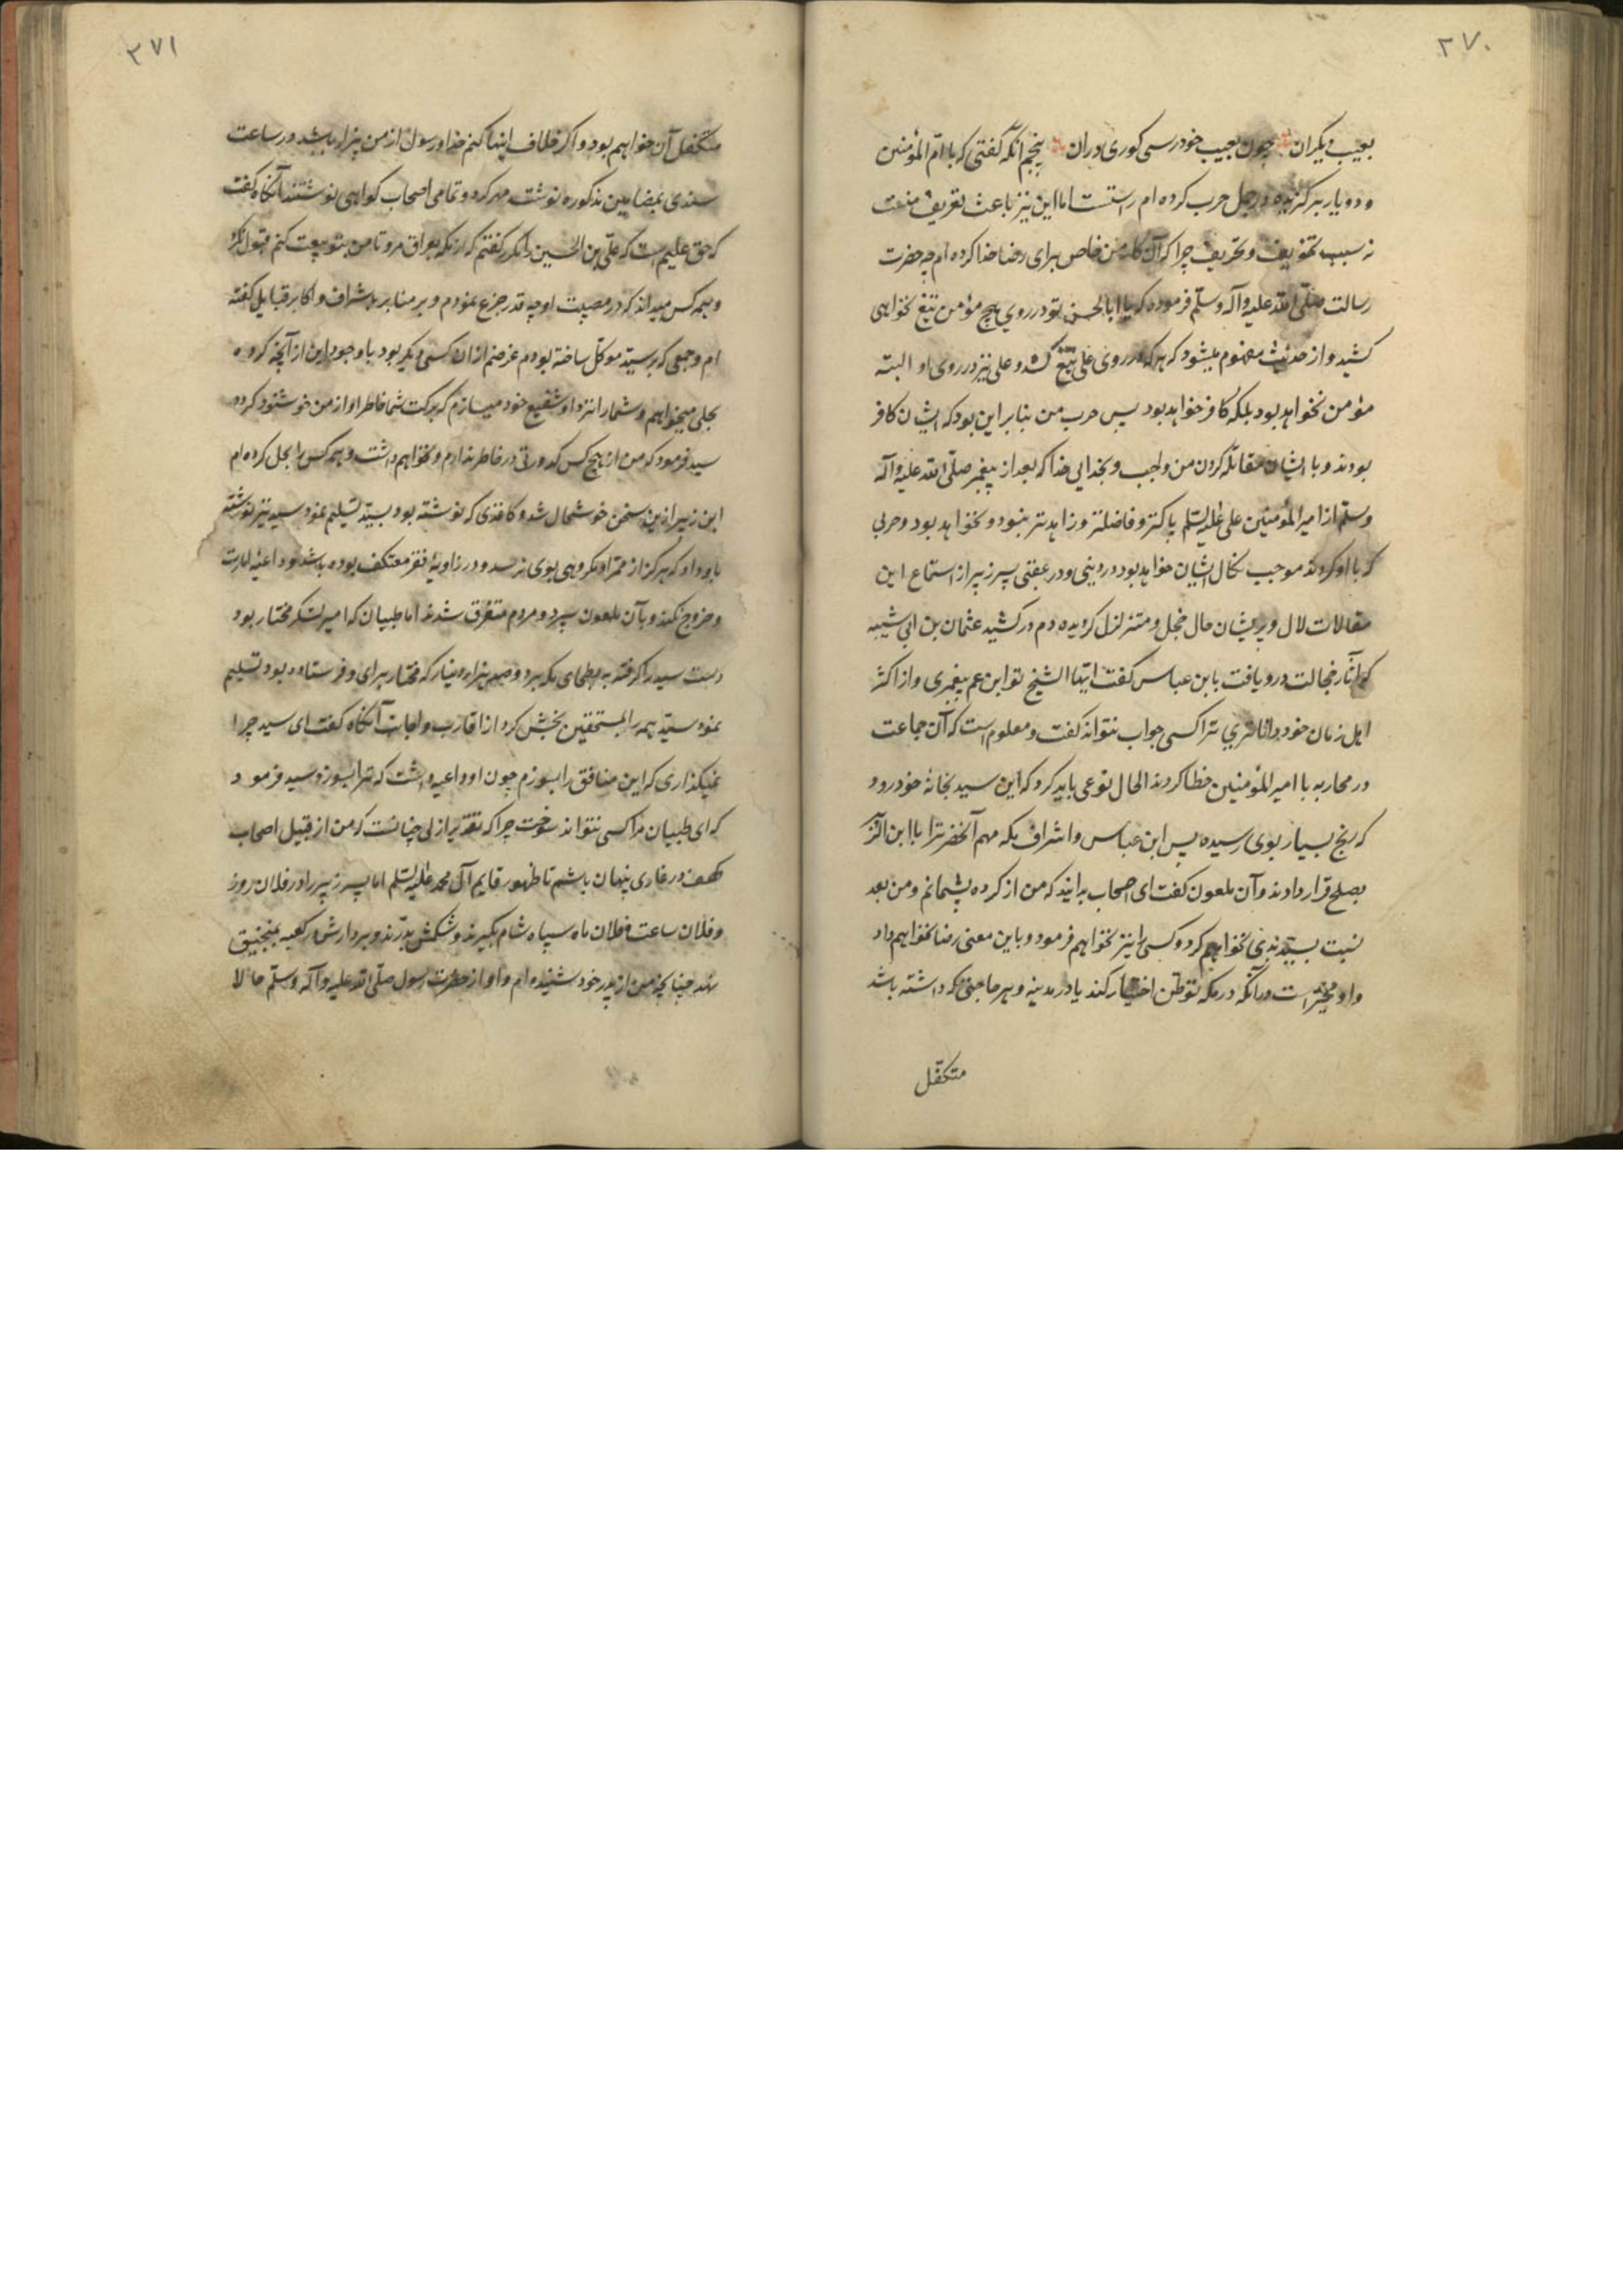 ۲۷۰
بعیب دیگران چون بعیب خود رسی کوری دران پنجم انکه کفتی که با ام المؤمنین
و دو یار برکزیده در جمل حرب کرده ام راستست اما این نیز باعث تعریف منست
نه سبب تخویف و تحریف چرا که آن کار من خاص برای رضا خدا کرده ام چه حضرت
رسالت صلی الله علیه وآله وسلم فرموده که یا ابا الحسن تو در روی هیچ مؤمن تیغ نخواهی
کشید و از حدیث مفهوم میشود که هر که در روی علی تیغ کشد و علی نیز در روی او البته
مؤمن نخواهد بود بلکه کافر خواهد بود پس حرب من بنا بر این بود که ایشان کافر
بودند و با ایشان مقاتله کردن من واجب و بخدایی خدا که بعد از پیغمبر صلی الله علیه وآله
وسلم از امیر المؤمنین علی علیه السلم پاکتر و فاضلتر و زاهدتر نبود و نخواهد بود و حربی
که با او کردند موجب نکال ایشان خواهد بود در دینی و در عقبی پسر زبیر از استماع این
مقالات لال و پریشان حال و خجل و متزلزل کردیده دم در کشید عثمان بن ابی شیبه
که آثار خجالت درو یافت بابن عباس کفت ایها الشیخ تو ابن عم پیغمبری و از اکثر
اهل زمان خود داناتری ترا کسی جواب نتواند کفت و معلوم است که آن جماعت
در محاربه با امیر المؤمنین خطا کردند الحال نوعی باید کرد که این سید بخانۀ خود رود
که رنج بسیار بوی رسیده پس ابن عباس و اشراف مکه مهم آنحضرترا با ابن الزبیر
بصلح قرار دادند و آن ملعون کفت ای اصحاب بدانید که من از کرده پشیمانم و من بعد
نسبت بسید بدی نخواهم کرد و کسی را نیز نخواهم فرمود و باین معنی رضا نخواهم داد
و او مخیر است در آنکه در مکه توطن اختیار کند یا در مدینه و بهر حاجتی که داشته باشد
متکفل
۲۷۱
متکفل آن خواهم بود و اکر خلاف اینها کنم خدا و رسول از من بیزار باشد در ساعت
سندی بمضامین مذکوره نوشت مهر کرد و تمامی اصحاب کواهی نوشتند آنکاه کفت
که حق علیم است که علی بن الحسین را مکرر کفتم که از مکه بعراق مرو تا من بتو بیعت کنم قبول نکرد
و همه کس میداند که در مصیبت او چه قدر جزع نمودم و بر منابر با شراف و اکابر قبایل کفته
ام و جمعی که بر سید موکل ساخته بودم غرضم از ان کسی دیکر بود با وجود این از آنچه کرده
بحلی میخواهم و شما را نزد او شفیع خود میسازم که ببرکت شما خاطر او از من خوشنود کردد
سید فرمود که من از هیچ کس کدورتی در خاطر ندارم و نخواهم داشت و همه کس را بحل کرده ام
ابن زبیر ازین سخن خوشحال شد و کاغذی که نوشته بود بسید تسلیم نمود سید نیز نوشته
باو داد که هرکز از ممر او مکروهی بوی نرسد و در زاویۀ فقر معتکف بوده باشد و داعیۀ امارت
و خروج نکند و بآن ملعون سپرد و مردم متفرق شدند اما طبیان که امیر لشکر مختار بود
دست سید را کرفته به بطحای مکه برد و صد هزار دینار که مختار برای او فرستاده بود تسلیم
نمود سید همه را بمستحقین بخش کرد از اقارب و اجانب آنکاه کفت ای سید چرا
نمیکذاری که این منافق را بسوزم چون او داعیه داشت که ترا بسوزد سید فرمود
که ای طبیان مرا کسی نتواند سوخت چرا که تقدیر ازلی چنانست که من از قبیل اصحاب
کهف در غاری پنهان باشم تا ظهور قایم آل محمد علیه السلم اما پسر زبیر را در فلان روز
و فلان ساعت و فلان ماه سپاه شام بکیرند و شکمش بدرند و بر دارش در کعبه بمنجنیق
نهند چنانچه من از پدر خود شنیده ام و او از حضرت رسول صلی الله علیه وآله وسلم حالا